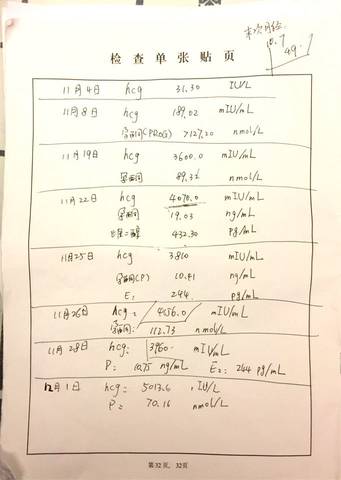 末次月经:
10.7
49.
检 查 单 张 贴 页
11月4日 hcg 31.30 IU/L
11月8日 hcg 189.02 mIU/mL
孕酮(PROG) >127.20 nmol/L
11月19日 hcg 3600.0 mIU/mL
孕酮 89.32 nmol/L
11月22日 hcg 4070.0 mIU/mL
孕酮 19.03 ng/mL
雌二醇 432.30 pg/mL
11月25日 hcg 3810 mIU/mL
孕酮(P) 10.41 ng/mL
E₂ 244 pg/mL
11月26日 hcg: 4056.0 mIU/mL
孕酮: 112.73 nmol/L
11月28日 hcg: 3960. mIU/mL
P: 10.75 ng/mL E₂: 244 pg/mL
12月1日 hcg: 5013.6 IU/L
P: 70.16 nmol/L
第32页, 32页